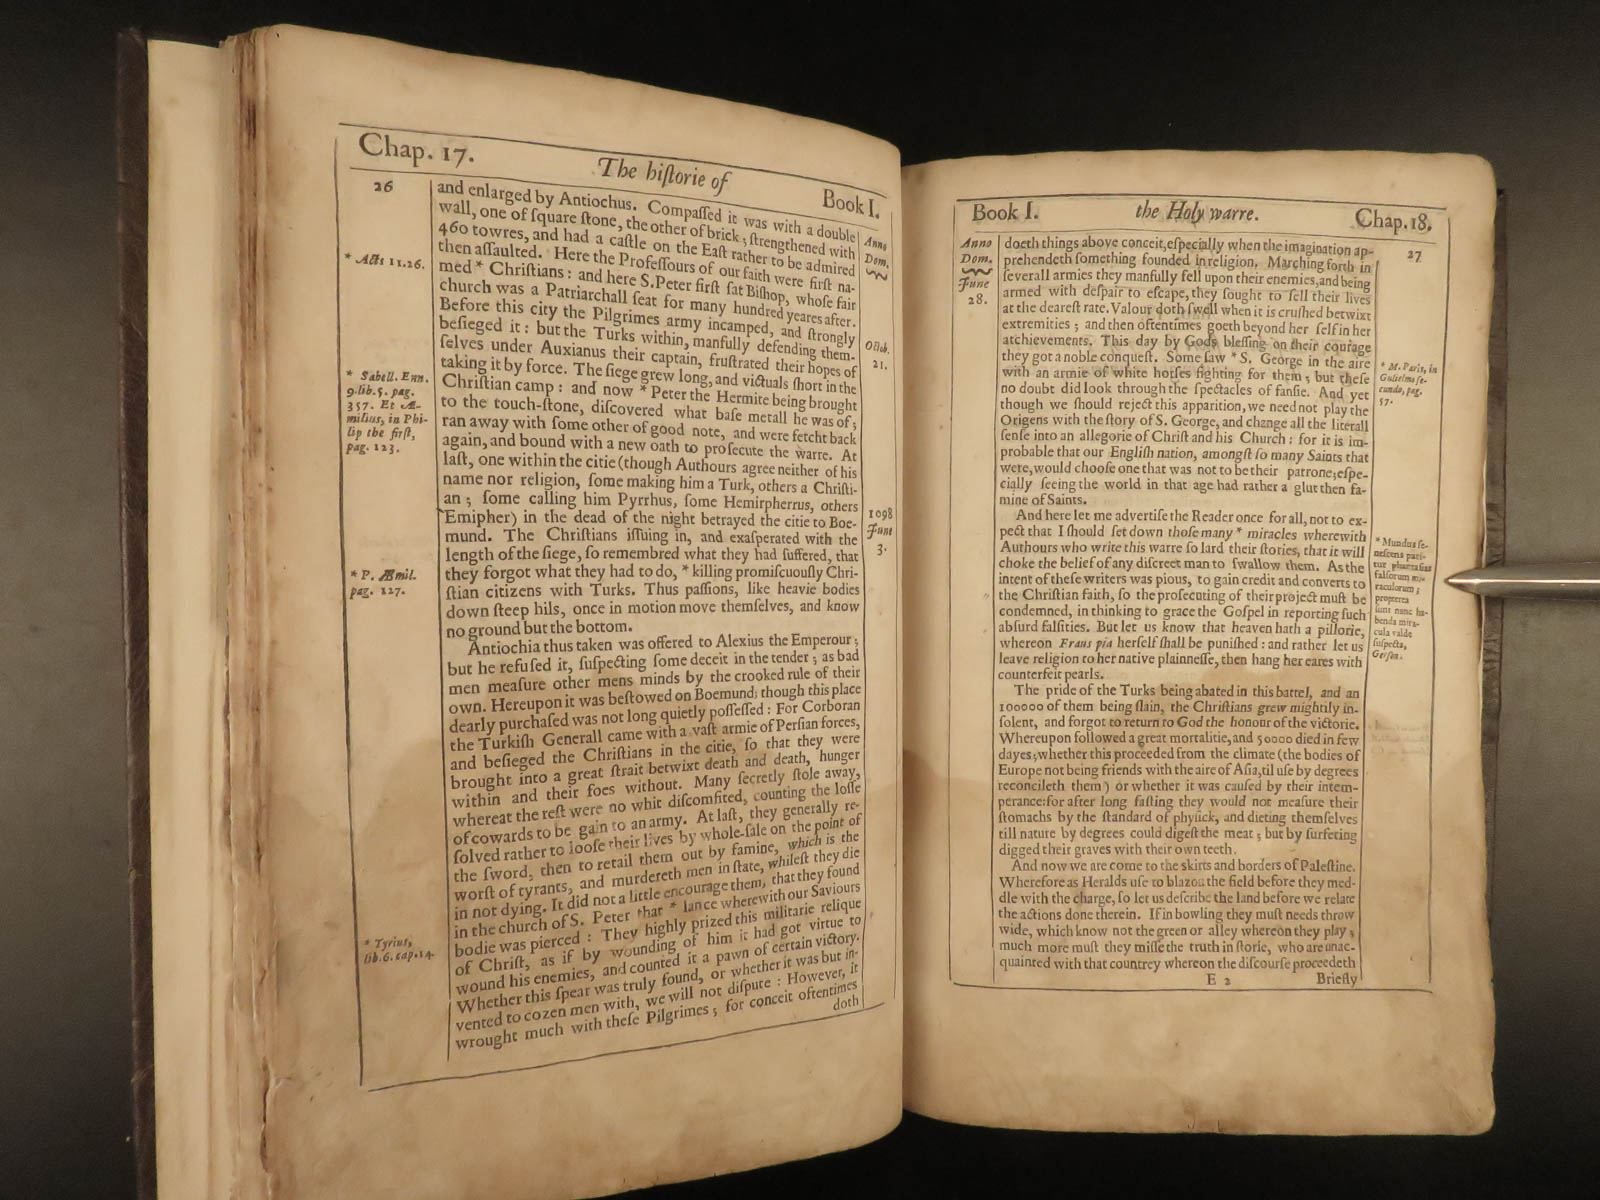 Chap. 17.
The hiſtorie of
Book I.
26
* Acts 11.26.
* Sabell. Enn.
9. lib. 5. pag.
357. Et Æ-
milius, in Phi-
lip the firſt,
pag. 123.
* P. Æmil.
pag. 127.
* Tyrius,
lib. 6. cap. 14.
and enlarged by Antiochus. Compaſſed it was with a double
wall, one of ſquare ſtone, the other of brick; ſtrengthened with
460 towres, and had a caſtle on the Eaſt rather to be admired
then aſſaulted. Here the Profeſſours of our faith were firſt na-
med * Chriſtians: and here S. Peter firſt ſat Biſhop, whoſe fair
church was a Patriarchall ſeat for many hundred yeares after.
Before this city the Pilgrimes army incamped, and ſtrongly
beſieged it: but the Turks within, manfully defending them-
ſelves under Auxianus their captain, fruſtrated their hopes of
taking it by force. The ſiege grew long, and victuals ſhort in the
Chriſtian camp: and now * Peter the Hermite being brought
to the touch-ſtone, diſcovered what baſe metall he was of;
ran away with ſome other of good note, and were fetcht back
again, and bound with a new oath to proſecute the warre. At
laſt, one within the citie (though Authours agree neither of his
name nor religion, ſome making him a Turk, others a Chriſti-
an; ſome calling him Pyrrhus, ſome Hemirpherrus, others
Emipher) in the dead of the night betrayed the citie to Boe-
mund. The Chriſtians iſſuing in, and exaſperated with the
length of the ſiege, ſo remembred what they had ſuffered, that
they forgot what they had to do, * killing promiſcuouſly Chri-
ſtian citizens with Turks. Thus paſſions, like heavie bodies
down ſteep hils, once in motion move themſelves, and know
no ground but the bottom.
Antiochia thus taken was offered to Alexius the Emperour;
but he refuſed it, ſuſpecting ſome deceit in the tender; as bad
men meaſure other mens minds by the crooked rule of their
own. Hereupon it was beſtowed on Boemund; though this place
dearly purchaſed was not long quietly poſſeſſed: For Corboran
the Turkiſh Generall came with a vaſt armie of Perſian forces,
and beſieged the Chriſtians in the citie, ſo that they were
brought into a great ſtrait betwixt death and death, hunger
within and their foes without. Many ſecretly ſtole away,
whereat the reſt were no whit diſcomfited, counting the loſſe
of cowards to be gain to an army. At laſt, they generally re-
ſolved rather to looſe their lives by whole-ſale on the point of
the ſword, then to retail them out by famine, which is the
worſt of tyrants, and murdereth men in ſtate, whileſt they die
in not dying. It did not a little encourage them, that they found
in the church of S. Peter that * lance wherewith our Saviours
bodie was pierced: They highly prized this militarie relique
of Chriſt, as if by wounding of him it had got virtue to
wound his enemies, and counted it a pawn of certain victory.
Whether this ſpear was truly found, or whether it was but in-
vented to cozen men with, we will not diſpute: However, it
wrought much with theſe Pilgrimes; for conceit oftentimes
doth
Anno
Dom.
Octob.
21.
1098
June
3.
Book I.
the Holy warre.
Chap. 18.
Anno
Dom.
June
28.
doeth things above conceit, eſpecially when the imagination ap-
prehendeth ſomething founded in religion. Marching forth in
ſeverall armies they manfully fell upon their enemies, and being
armed with deſpair to eſcape, they ſought to ſell their lives
at the deareſt rate. Valour doth ſwell when it is cruſhed betwixt
extremities; and then oftentimes goeth beyond her ſelf in her
atchievements. This day by Gods bleſſing on their courage
they got a noble conqueſt. Some ſaw * S. George in the aire
with an armie of white horſes fighting for them; but theſe
no doubt did look through the ſpectacles of fanſie. And yet
though we ſhould reject this apparition, we need not play the
Origens with the ſtory of S. George, and change all the literall
ſenſe into an allegorie of Chriſt and his Church: for it is im-
probable that our Engliſh nation, amongſt ſo many Saints that
were, would chooſe one that was not to be their patrone; eſpe-
cially ſeeing the world in that age had rather a glut then fa-
mine of Saints.
And here let me advertiſe the Reader once for all, not to ex-
pect that I ſhould ſet down thoſe many * miracles wherewith
Authours who write this warre ſo lard their ſtories, that it will
choke the belief of any diſcreet man to ſwallow them. As the
intent of theſe writers was pious, to gain credit and converts to
the Chriſtian faith, ſo the proſecuting of their project muſt be
condemned, in thinking to grace the Goſpel in reporting ſuch
abſurd falſities. But let us know that heaven hath a pillorie,
whereon Fraus pia herſelf ſhall be puniſhed: and rather let us
leave religion to her native plainneſſe, then hang her eares with
counterfeit pearls.
The pride of the Turks being abated in this battel, and an
100000 of them being ſlain, the Chriſtians grew mightily in-
ſolent, and forgot to return to God the honour of the victorie.
Whereupon followed a great mortalitie, and 50000 died in few
dayes; whether this proceeded from the climate (the bodies of
Europe not being friends with the aire of Aſia, til uſe by degrees
reconcileth them) or whether it was cauſed by their intem-
perance: for after long faſting they would not meaſure their
ſtomachs by the ſtandard of phyſick, and dieting themſelves
till nature by degrees could digeſt the meat; but by ſurfeting
digged their graves with their own teeth.
And now we are come to the skirts and borders of Paleſtine.
Wherefore as Heralds uſe to blazon the field before they med-
dle with the charge, ſo let us deſcribe the land before we relate
the actions done therein. If in bowling they muſt needs throw
wide, which know not the green or alley whereon they play;
much more muſt they miſſe the truth in ſtorie, who are unac-
quainted with that countrey whereon the diſcourſe proceedeth
E 2
Briefly
27
* M. Paris, in
Gulielmo ſe-
cundo, pag.
57.
* Mundus ſe-
neſcens pati-
tur phantaſias
falſorum mi-
raculorum;
propterea
ſunt nunc ha-
benda mira-
cula valde
ſuſpecta,
Gerſon.